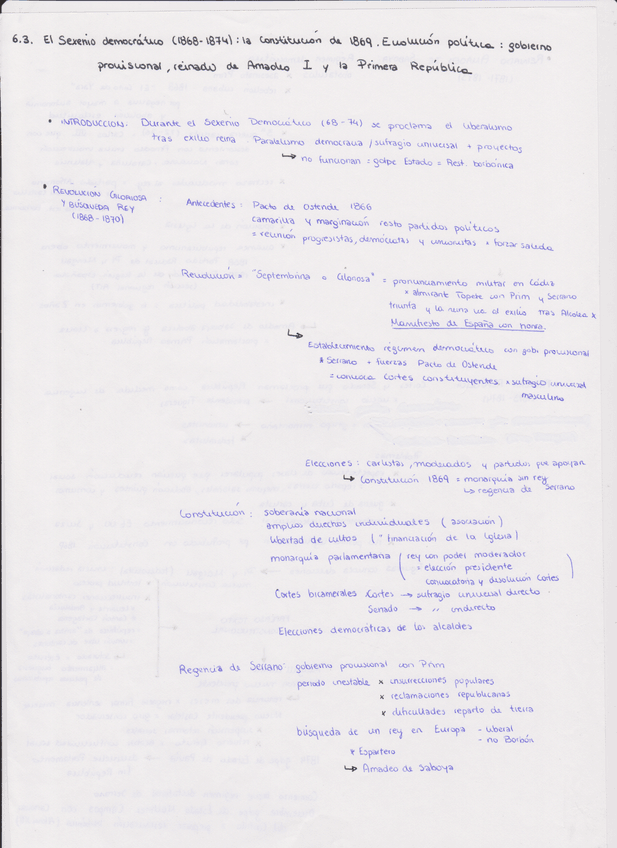 6.3. El Sexenio democrático (1868-1874): la Constitución de 1869. Evolución política: gobierno
provisional, reinado de Amadeo I y la Primera República
• INTRODUCCION: Durante el Sexenio Democrático (68-74) se proclama el liberalismo
tras exilio reina Paralelismo democracia / sufragio universal + proyectos
↳ no funcionan = golpe Estado = Rest. borbónica
• REVOLUCIÓN GLORIOSA Y BÚSQUEDA REY (1868-1870) : Antecedentes: Pacto de Ostende 1866
camarilla y marginación resto partidos políticos
= reunión progresistas, demócratas y unionistas + forzar salida
Revolución = "Septembrina o Gloriosa" = pronunciamiento militar en Cádiz
* almirante Topete con Prim y Serrano
triunfa y la reina va al exilio tras Alcolea *
Manifiesto de España con honra.
↳ Establecimiento régimen democrático con gob. provisional
* Serrano + fuerzas Pacto de Ostende
= convoca Cortes constituyentes * sufragio universal
masculino
Elecciones: carlistas, moderados y partidos que apoyan
↳ Constitución 1869 = monarquía sin rey
↳ regencia de Serrano
Constitución: soberanía nacional
amplios derechos individuales (asociación)
libertad de cultos (* financiación de la Iglesia)
monarquía parlamentaria (rey con poder moderador
= elección presidente
convocatoria y disolución Cortes)
Cortes bicamerales Cortes → sufragio universal directo
Senado → " indirecto
Elecciones democráticas de los alcaldes
Regencia de Serrano: gobierno provisional con Prim
periodo inestable * insurrecciones populares
* reclamaciones republicanas
* dificultades reparto de tierra
búsqueda de un rey en Europa - liberal
- no Borbón
* Espartero
↳ Amadeo de Saboya